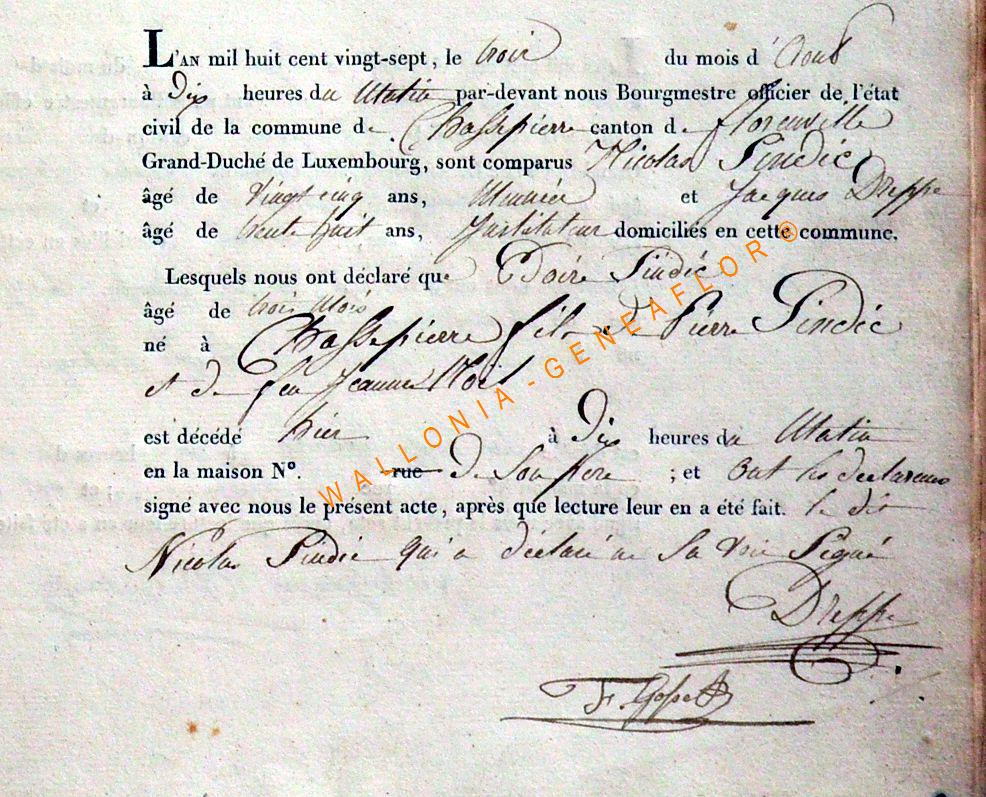 L'AN mil huit cent vingt-sept, le trois du mois d'Août
à Dix heures du Matin par-devant nous Bourgmestre officier de l'état
civil de la commune de Chassepierre canton de florenville
Grand-Duché de Luxembourg, sont comparus Nicolas Pindic
âgé de vingt cinq ans, et Jacques Dreppe
âgé de trente huit ans, Instituteur domiciliés en cette commune.
Lesquels nous ont déclaré que Pindic
âgé de trois Mois
né à Chassepierre fils de Pierre Pindic
et de feu Jeanne
est décédé hier à Dix heures du Matin
en la maison N°. rue de Son Père ; et ont les déclarans
signé avec nous le présent acte, après que lecture leur en a été fait. le dit
Nicolas Pindic qui a déclaré ne
Dreppe
WALLONIA-GENEAFLOR®